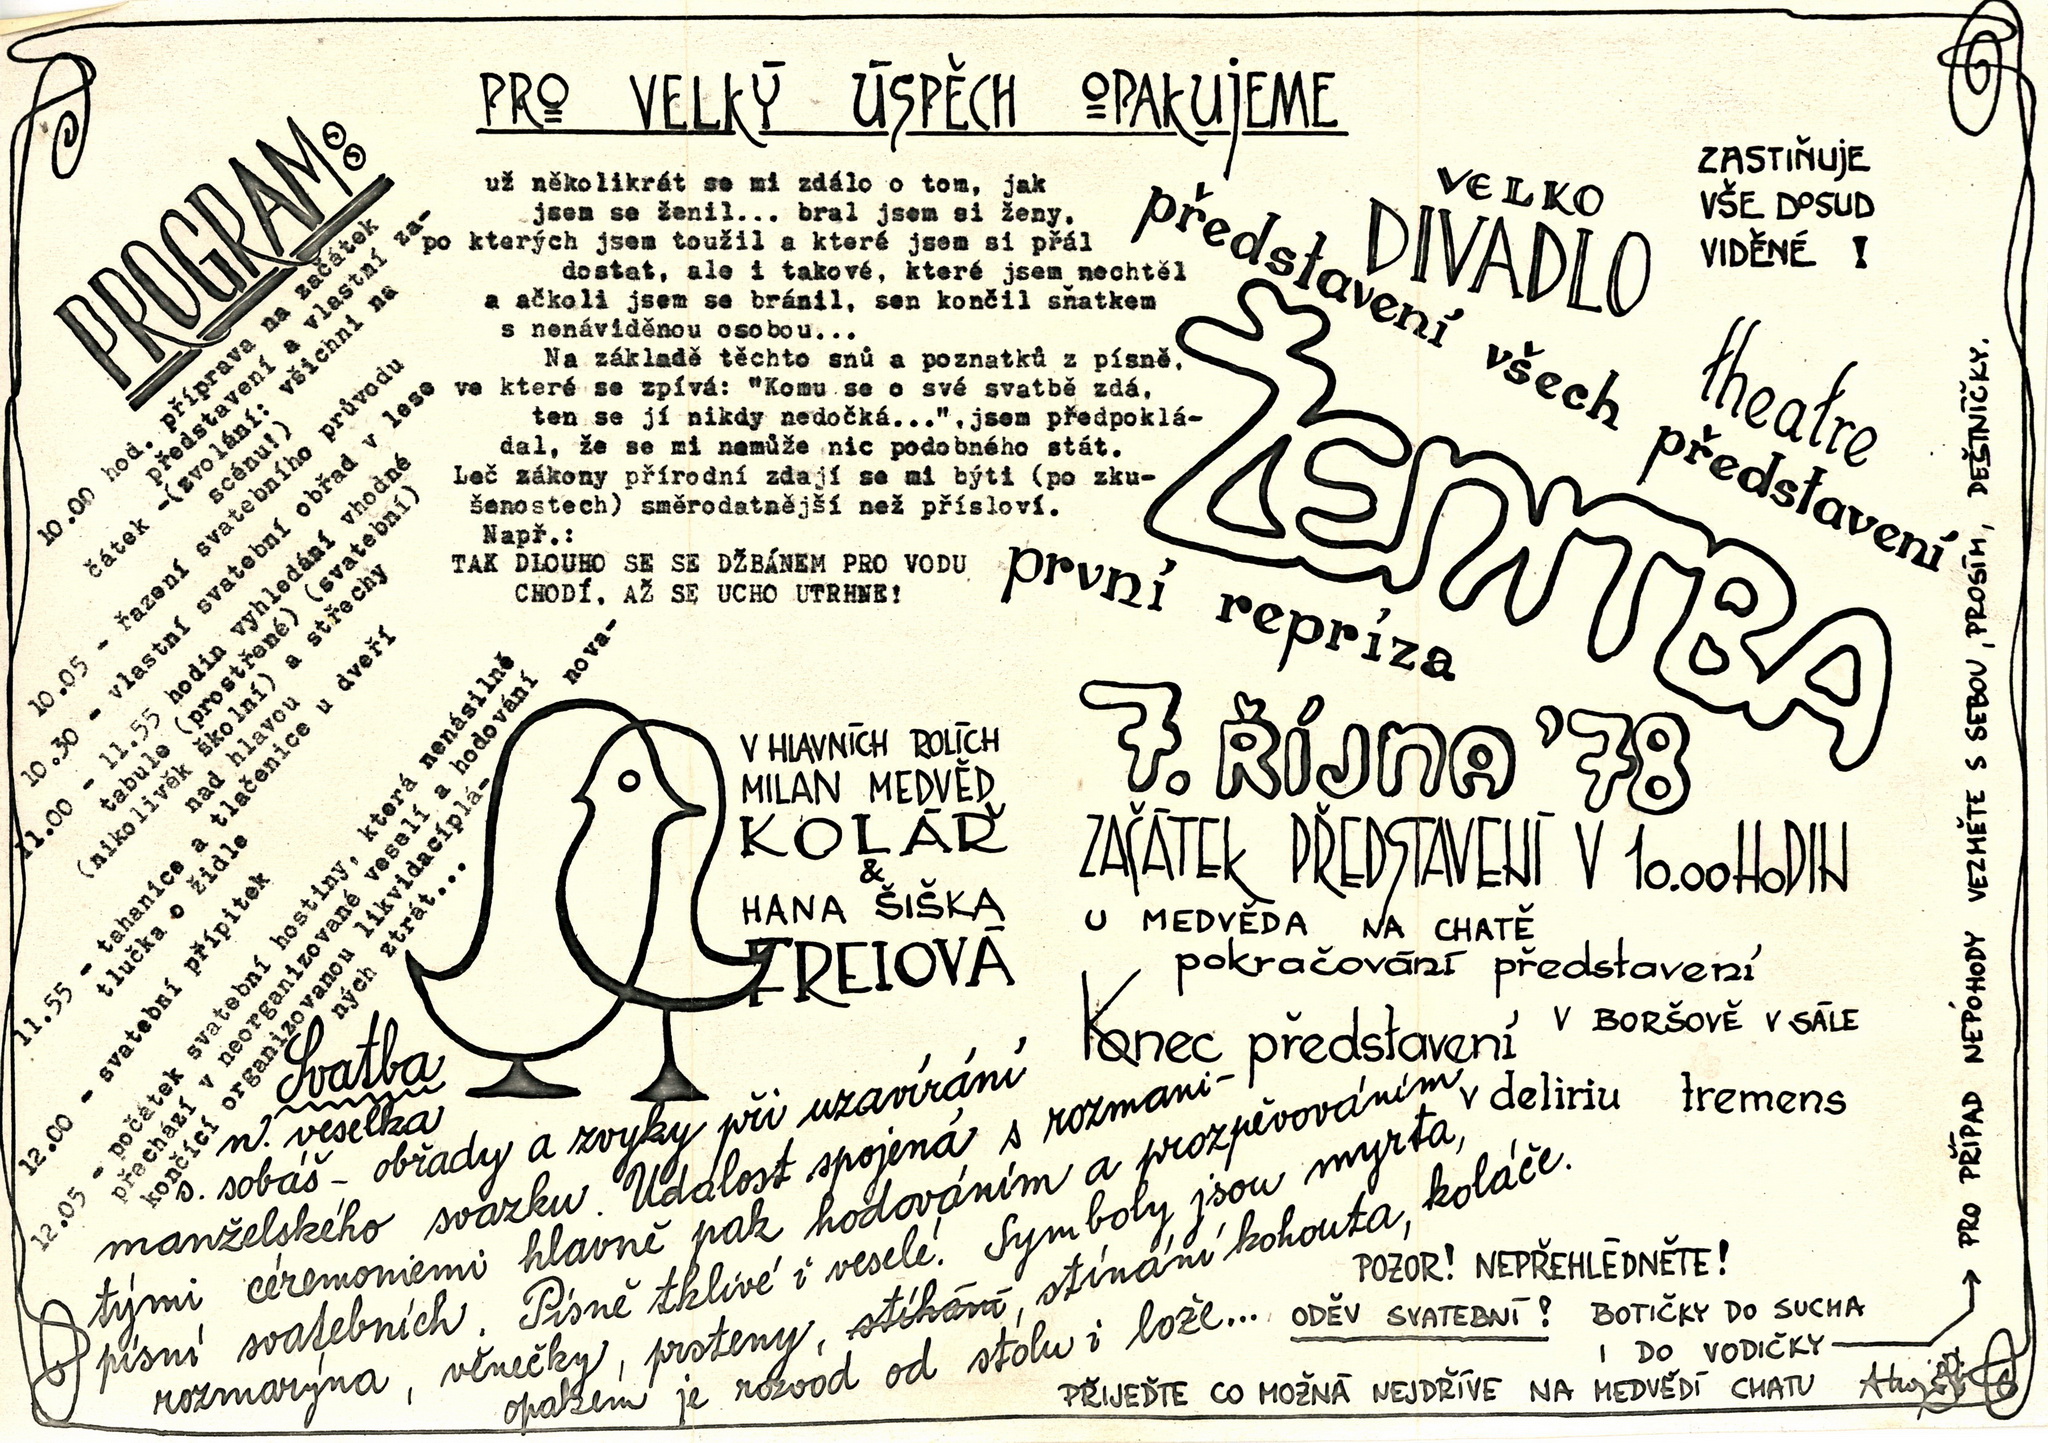 PRO VELKÝ ÚSPĚCH OPAKUJEME
PROGRAM:
10.00 hod. příprava na začátek
představení a vlastní za-
čátek -(zvolání: všichni na
scénu!)
10.05 - řazení svatebního průvodu
10.30 - vlastní svatební obřad v lese
11.00 - 11.55 hodin vyhledání vhodné
tabule (prostřené) (svatební)
(nikolivěk školní) a střechy
nad hlavou
11.55 - tahanice a tlačenice u dveří
tlučka o židle
12.00 - svatební přípitek
12.05 - počátek svatební hostiny, která nenásilně
přechází v neorganizované veselí a hodování
končící organizovanou likvidacíplá-
nova-
ných ztrát...
už několikrát se mi zdálo o tom, jak
jsem se ženil... bral jsem si ženy,
po kterých jsem toužil a které jsem si přál
dostat, ale i takové, které jsem nechtěl
a ačkoli jsem se bránil, sen končil sňatkem
s nenáviděnou osobou...
Na základě těchto snů a poznatků z písně,
ve které se zpívá: "Komu se o své svatbě zdá,
ten se jí nikdy nedočká...",jsem předpoklá-
dal, že se mi nemůže nic podobného stát.
Leč zákony přírodní zdají se mi býti (po zku-
šenostech) směrodatnější než přísloví.
Např.:
TAK DLOUHO SE SE DŽBÁNEM PRO VODU
CHODÍ, AŽ SE UCHO UTRHNE!
VELKO
DIVADLO
ZASTIŇUJE
VŠE DOSUD
VIDĚNÉ !
představení všech představení
theatre
ŽENITBA
první repríza
7. Října '78
ZAČÁTEK PŘEDSTAVENÍ V 10.00 HODIN
U MEDVĚDA NA CHATĚ
pokračování představení
V BORŠOVĚ V SÁLE
Konec představení
v deliriu tremens
V HLAVNÍCH ROLÍCH
MILAN MEDVĚD
KOLÁŘ
&
HANA ŠIŠKA
FREIOVÁ
Svatba
n. veselka
s. sobáš - obřady a zvyky při uzavírání
manželského svazku. Událost spojená s rozmani-
tými céremoniemi hlavně pak hodováním a prozpěvováním
písní svatebních. Písně tklivé i veselé. Symboly jsou myrta,
rozmarýna, věnečky, prsteny, stíhání, stínání kohouta, koláče.
opakem je rozvod od stolu i lože...
POZOR! NEPŘEHLÉDNĚTE!
ODĚV SVATEBNÍ! BOTIČKY DO SUCHA
I DO VODIČKY
PŘIJEĎTE CO MOŽNÁ NEJDŘÍVE NA MEDVĚDÍ CHATU
PRO PŘÍPAD NEPOHODY VEZMĚTE S SEBOU, PROSÍM, DEŠTNÍČKY.